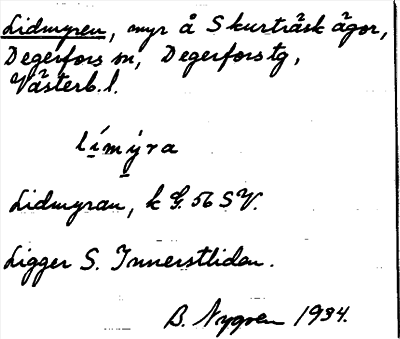 Lidmyren, myr å Skurträsk ägor,
Degerfors sn, Degerfors tg,
Västerb. l.
límýra
Lidmyran, k G. 56 SV.
Ligger S. Innerstlidan.
B. Nygren 1934.